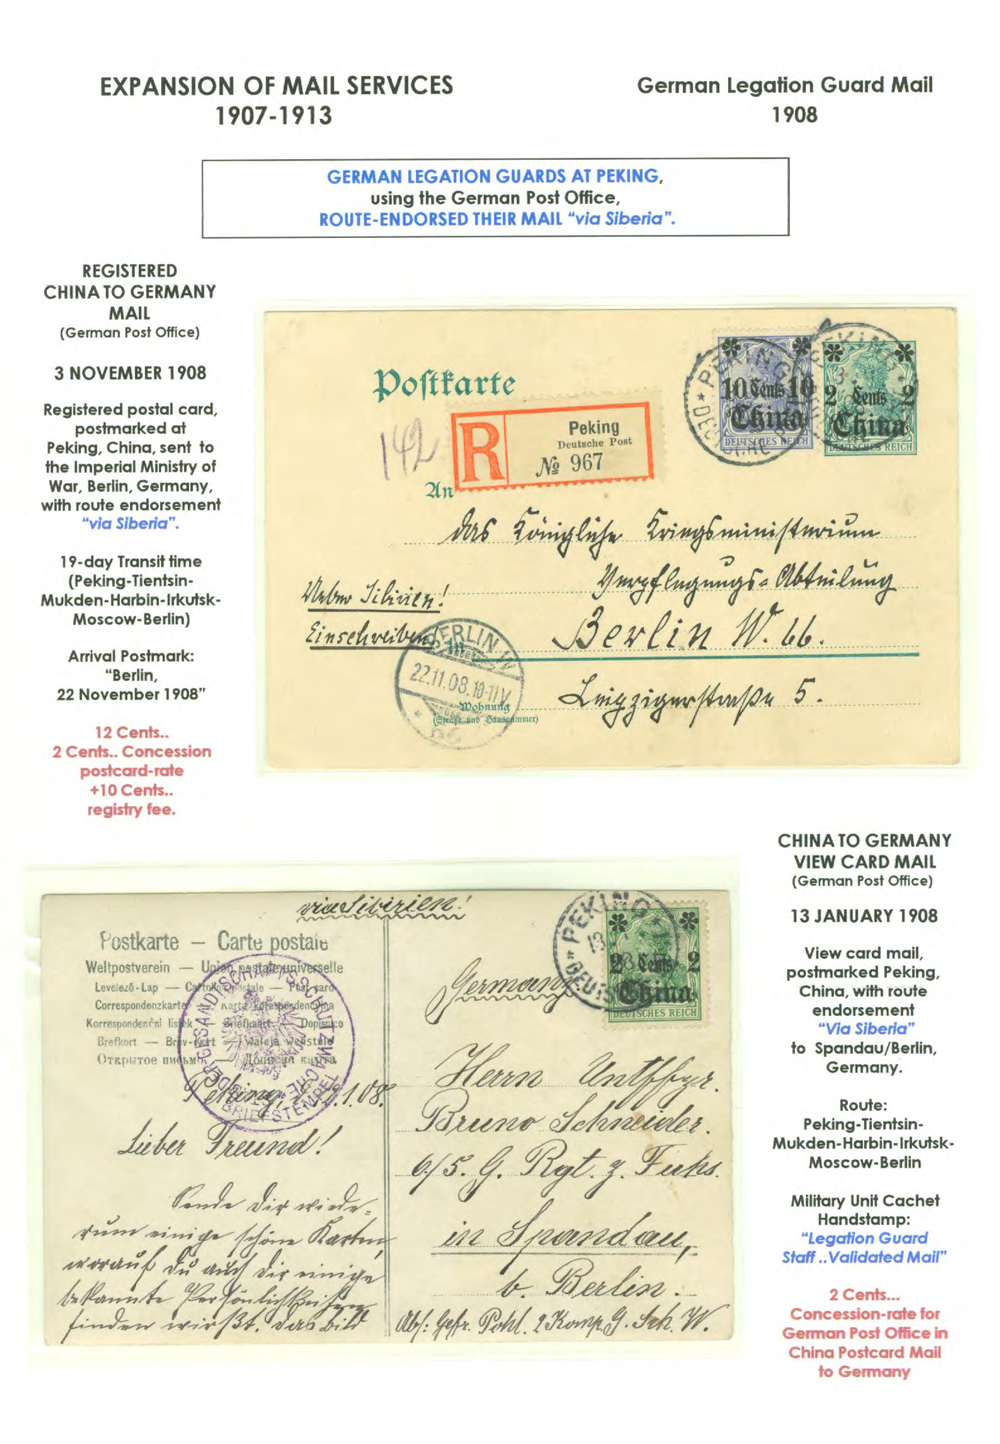 EXPANSION OF MAIL SERVICES
1907-1913
German Legation Guard Mail
1908
GERMAN LEGATION GUARDS AT PEKING,
using the German Post Office,
ROUTE-ENDORSED THEIR MAIL "via Siberia".
REGISTERED
CHINA TO GERMANY
MAIL
(German Post Office)
3 NOVEMBER 1908
Registered postal card,
postmarked at
Peking, China, sent to
the Imperial Ministry of
War, Berlin, Germany,
with route endorsement
"via Siberia".
19-day Transit time
(Peking-Tientsin-
Mukden-Harbin-Irkutsk-
Moscow-Berlin)
Arrival Postmark:
"Berlin,
22 November 1908"
12 Cents..
2 Cents.. Concession
postcard-rate
+10 Cents..
registry fee.
Postkarte
142
R
Peking
Deutsche Post
№ 967
PEKING
DEUTSCHE
10 Cents 10
China
DEUTSCHES REICH
PEKING
2 Cents 2
China
DEUTSCHES REICH
An
das Königliche Kriegsministerium
Verpflegungs-Abteilung
Ueber Sibirien!
Einschreiben!
Berlin W. 66.
Leipzigerstraße 5.
BERLIN W
22.11.08.10-11V
66
Wohnung
(Straße und Hausnummer)
CHINA TO GERMANY
VIEW CARD MAIL
(German Post Office)
13 JANUARY 1908
View card mail,
postmarked Peking,
China, with route
endorsement
"Via Siberia"
to Spandau/Berlin,
Germany.
Route:
Peking-Tientsin-
Mukden-Harbin-Irkutsk-
Moscow-Berlin
Military Unit Cachet
Handstamp:
"Legation Guard
Staff ..Validated Mail"
2 Cents...
Concession-rate for
German Post Office in
China Postcard Mail
to Germany
via Sibirien!
Postkarte — Carte postale
Weltpostverein — Union postale universelle
Levelező-Lap — Cartolina postale — Post card
Correspondenzkarte
Korrespondenční lístek — Briefkaart — Dopisnico
Brefkort — Brev-kort — Tarjeta
Открытое письмо —
GESANDTSCHAFTSSCHUTZWACHE
BRIEFSTEMPEL
PEKING
2 Cents 2
China
DEUTSCHES REICH
Germany
Peking, 1.08.
Lieber Freund!
Sende Dir wiede-
rum einige schöne Karten,
worauf Du auch Dir einige
bekannte Persönlichkeiten
finden wirst. Das Bild
Herrn
Bruno Schneider.
6/5. G. Rgt. z. Fuß.
in Spandau,
b. Berlin.
Abs: Gefr. Pohl. 2 Komp. G. Sch. W.